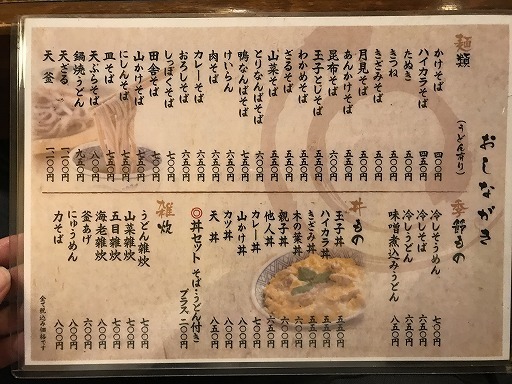 おしながき
麺類
(うどん有り)
かけそば 四〇〇円
ハイカラそば 四五〇円
たぬき 五五〇円
きつね 五五〇円
きざみそば 五五〇円
月見そば 五五〇円
あんかけそば 五五〇円
昆布そば 六〇〇円
玉子とじそば 五五〇円
わかめそば 五五〇円
ざるそば 五五〇円
山菜そば 五五〇円
とりなんばそば 六〇〇円
鴨なんばそば 七五〇円
けいらん 六五〇円
肉そば 六五〇円
カレーそば 六五〇円
おろしそば 六五〇円
しっぽくそば 六五〇円
田舎そば 七〇〇円
山かけそば 七五〇円
にしんそば 七五〇円
皿そば 七五〇円
天ぷらそば 八〇〇円
鍋焼うどん 九五〇円
天ざる 一、二〇〇円
天釜 一、二〇〇円
季節もの
冷しそうめん 七〇〇円
冷しそば 八五〇円
冷しうどん 八五〇円
味噌煮込みうどん 八五〇円
丼もの
玉子丼 五五〇円
ハイカラ丼 五五〇円
きざみ丼 五五〇円
木の葉丼 六〇〇円
親子丼
他人丼 六五〇円
カレー丼 七〇〇円
山かけ丼
カツ丼 八五〇円
天丼 八五〇円
◎丼セット そば・うどん付き
プラス 二〇〇円
雑炊
うどん雑炊 七〇〇円
山菜雑炊 七〇〇円
五目雑炊 七〇〇円
海老雑炊 八〇〇円
釜あげ 六〇〇円
にゅうめん
力そば 八〇〇円
全て税込み価格です